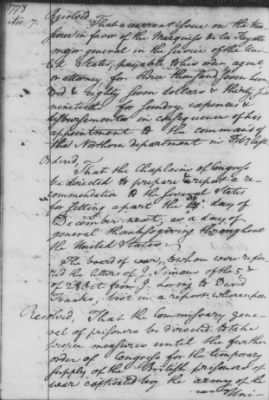 1778
Nov. 7.
Resolved,
That a warrant issue on the trea
surer in favor of the Marquis de la Fayette
major general in the service of the Uni
ted States, payable to his order agent
or attorney for three thousand seven hun
dred & eighty seven dollars & thirty
ninetieths for sundry expences &
disbursements in consequence of his
appointment to the command of
the Northern department in Feb last
Ordered,
That the Chaplains of Congress
be directed to prepare & report a re-
commendation to the several States
for setting apart the day of
December next, as a day of
general thanksgiving throughout
the United States.
The board of war, to whom were refer
red the letters of J. Simons of the 5 &
of 28 Oct from J. Loring to David
Franks, brot in a report whereupon
Resolved, That the Commissary gene-
ral of prisoners be directed to take
proper measures until the further
order of Congress for the temporary
supply of the British prisoners of
war captivated by the army of the
Uni-